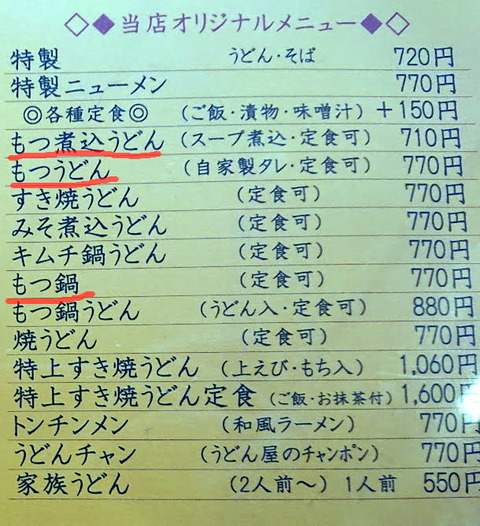 ◇◆当店オリジナルメニュー◆◇
特製 うどん・そば 720円
特製ニューメン 770円
◎各種定食◎ (ご飯・漬物・味噌汁) +150円
もつ煮込うどん (スープ煮込・定食可) 710円
もつうどん (自家製タレ・定食可) 770円
すき焼うどん (定食可) 770円
みそ煮込うどん (定食可) 770円
キムチ鍋うどん (定食可) 770円
もつ鍋 (定食可) 770円
もつ鍋うどん (うどん入・定食可) 880円
焼うどん (定食可) 770円
特上すき焼うどん (上えび・もち入) 1,060円
特上すき焼うどん定食 (ご飯・お抹茶付) 1,600円
トンチンメン (和風ラーメン) 770円
うどんチャン (うどん屋のチャンポン) 770円
家族うどん (2人前〜) 1人前 550円